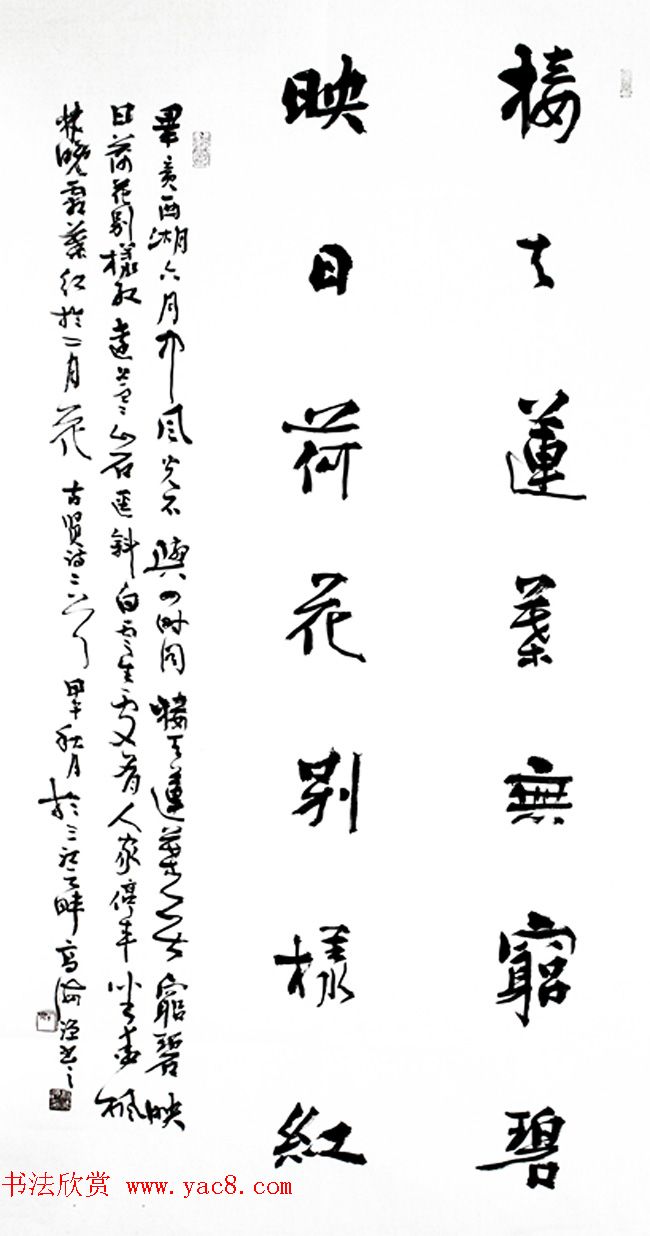 接天蓮葉無窮碧
映日荷花别樣紅
畢竟西湖六月中風光不與四時同接天蓮葉無窮碧映
日荷花别樣紅遠上寒山石徑斜白雲生處有人家停車坐愛楓
林晚霜葉紅於二月花古賢詩二首甲午秋月於三江畔高海
书法欣赏 www.yac8.com